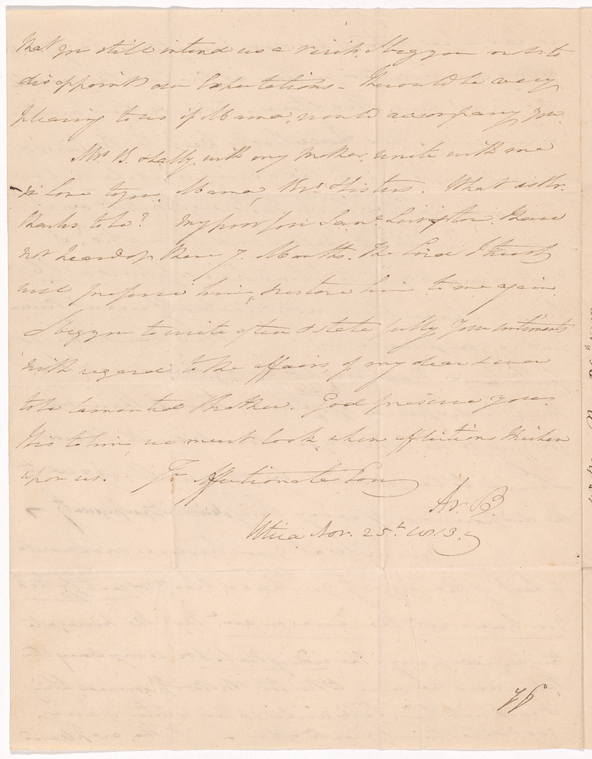 that you still intend us a visit. I beg you not to
disappoint our Expectations - It would be very
pleasing to us if Mama would accompany you.
Mrs B. & Sally with my Mother unite with me
in Love to you, Mama, & Sisters. What is Mr.
thanks to be? My poor Son I have
not heard of these 7. Months. The Lord I trust
will preserve him, & restore him to me again.
I beg you to write often & state fully your sentiments
with regard to the affairs, of my dear & ever
to be lamented Brother. God preserve you.
Tis to him, we must look, when afflictions thicken
upon us. Yr. affectionate Son
Ar. B.
Utica Nov. 25th 1813.